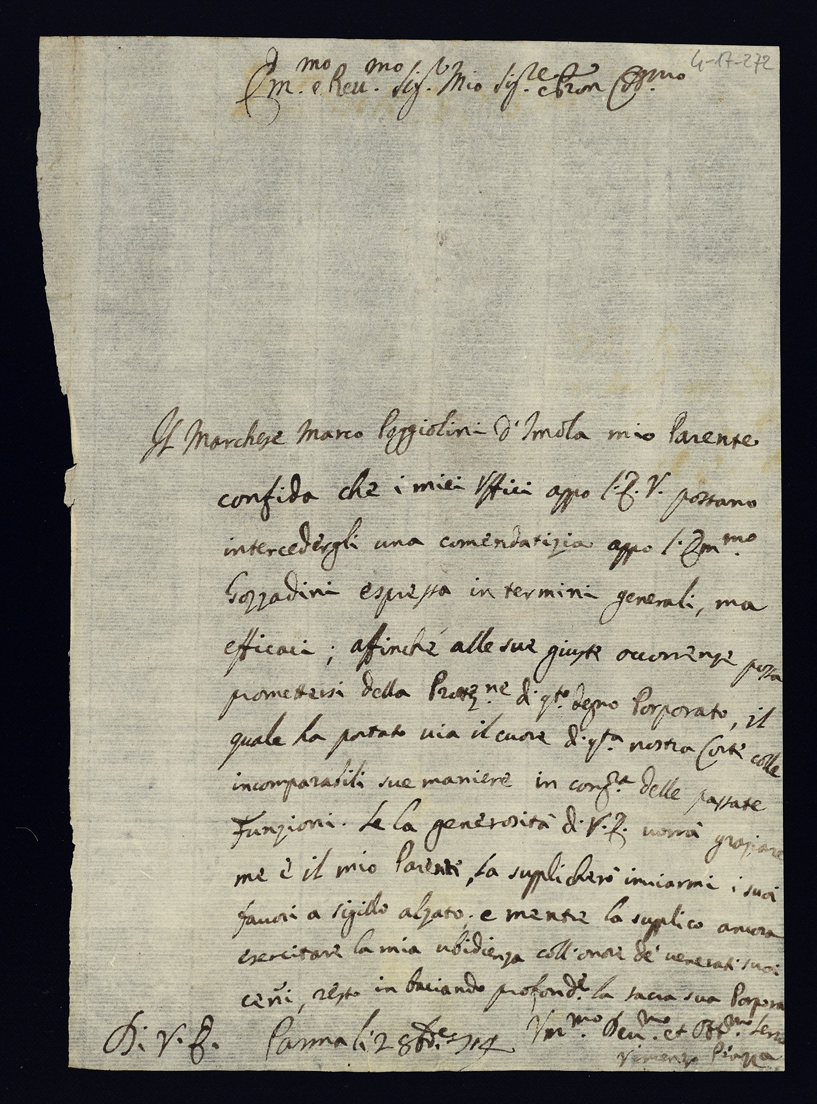 4-17-272
Em.mo e Reu.mo Sig.r Mio Sig.re e Pron Col.mo
Il Marchese Marco Poggiolini d'Imola mio Parente
confida che i miei Vffici appo l'E. V. possano
intercedergli una comendatizia appo l'Em.mo
Gozzadini espressa in termini generali, ma
efficaci; affinché alle sue giuste occorrenze possa
promettersi della Protez.ne di q.to degno Porporato, il
quale ha portato uia il cuore di q.ta nostra Corte colle
incomparabili sue maniere in cong.ra delle passate
Funzioni. Se la generosità di V. E. uorrà graziare
me è il mio Parente, La supplicherò inuiarmi i suoi
fauori a sigillo alzato; e mentre la suplico ancora
esercitare la mia ubidienza coll'onore de' uenerati suoi
ceñi, resto in baciando profond.e la sacra sua Porpora
Di V. E. Parma li 28 714 Vm.mo Deu.mo et Obb.mo Seru
Vincenzo Piazza